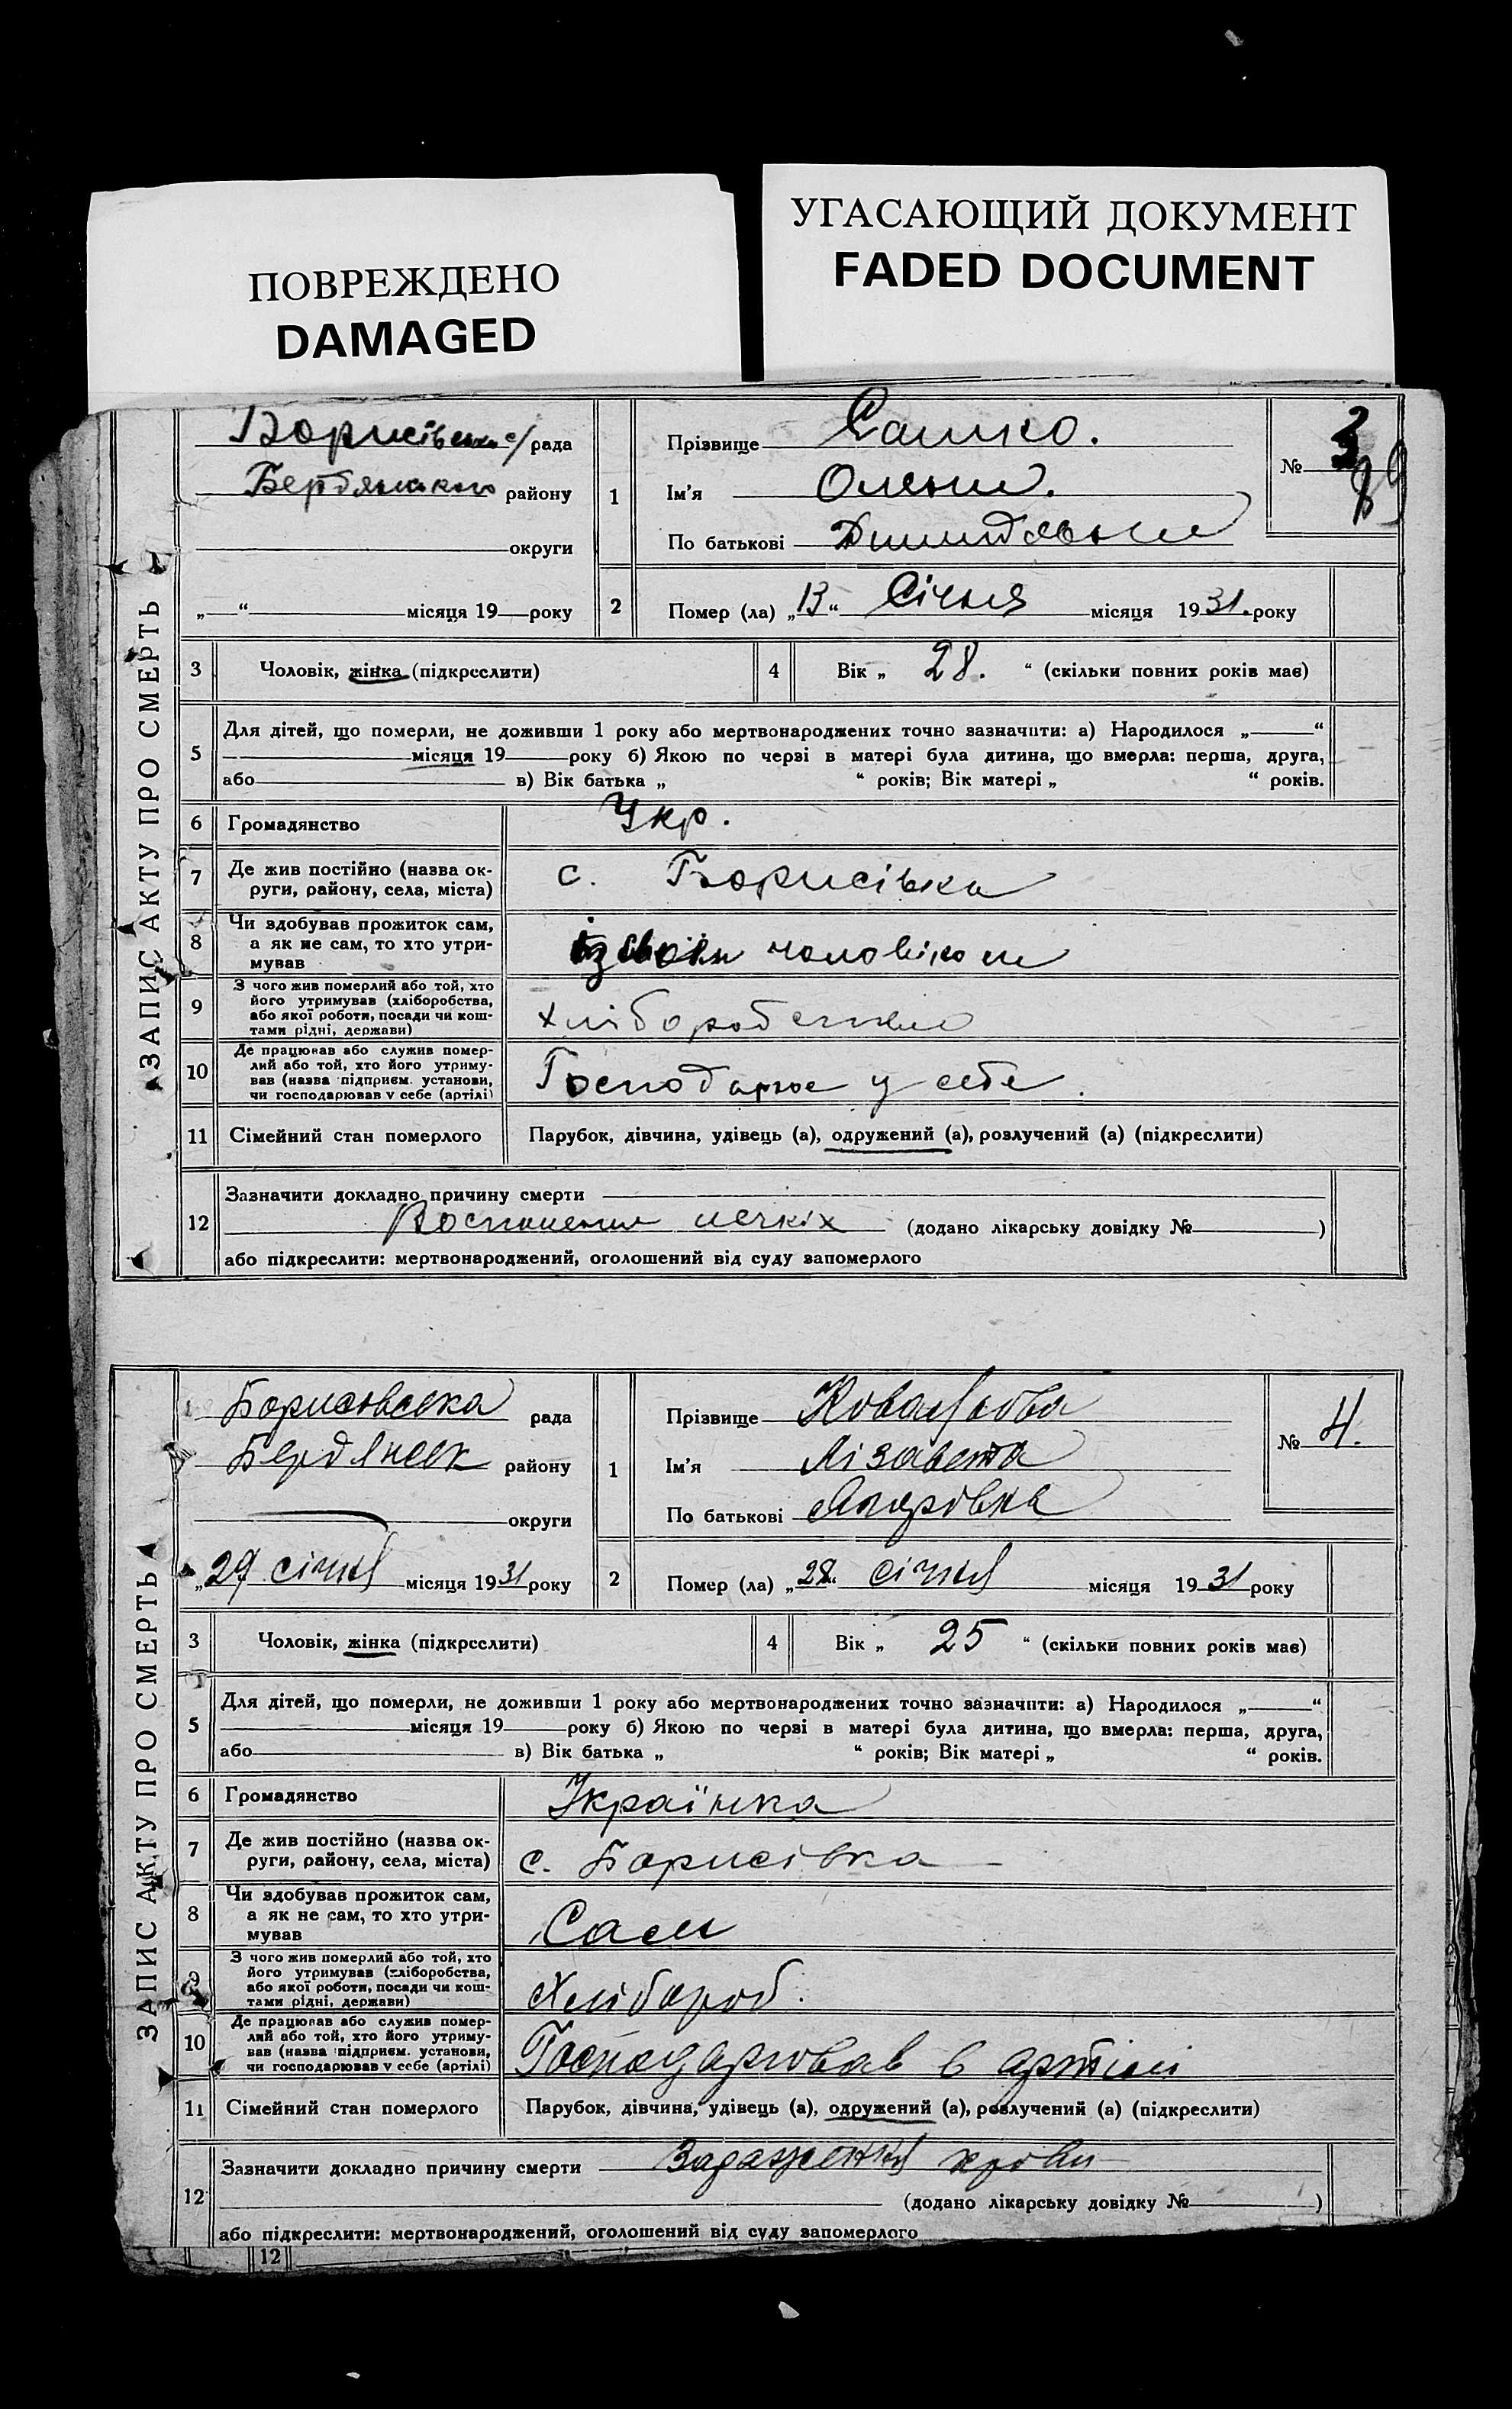 ПОВРЕЖДЕНО
DAMAGED
УГАСАЮЩИЙ ДОКУМЕНТ
FADED DOCUMENT
ЗАПИС АКТУ ПРО СМЕРТЬ
Борисівська с/рада
Бердянського району
округи
„ “ місяця 19 року
1
Прізвище Сашко.
Ім'я Олена.
По батькові
№ 3
79
2
Помер (ла) „13“ Січня місяця 1931. року
3 Чоловік, жінка (підкреслити)
4 Вік „ 28. “ (скільки повних років має)
5 Для дітей, що померли, не доживши 1 року або мертвонароджених точно зазначити: а) Народилося „ “
місяця 19 року б) Якою по черзі в матері була дитина, що вмерла: перша, друга,
або в) Вік батька „ “ років; Вік матері „ “ років.
6 Громадянство Укр.
7 Де жив постійно (назва ок-
руги, району, села, міста) с. Борисівка
8 Чи здобував прожиток сам,
а як не сам, то хто утри-
мував із своїм чоловіком
9 З чого жив померлий або той, хто
його утримував (хліборобства,
або якої роботи, посади чи кош-
тами рідні, держави) хлібороб
10 Де працював або служив помер-
лий або той, хто його утриму-
вав (назва підприєм. установи,
чи господарював у себе (артілі) Господарює у себе.
11 Сімейний стан померлого Парубок, дівчина, удівець (а), одружений (а), розлучений (а) (підкреслити)
12 Зазначити докладно причину смерти
Воспаление легкіх (додано лікарську довідку № )
або підкреслити: мертвонароджений, оголошений від суду запомерлого
ЗАПИС АКТУ ПРО СМЕРТЬ
Борисовська рада
Бердянськ району
округи
„29 січня місяця 1931 року
1
Прізвище Ковальова
Ім'я Лізавета
По батькові
№ 4.
2
Помер (ла) „28“ січня місяця 1931 року
3 Чоловік, жінка (підкреслити)
4 Вік „ 25 “ (скільки повних років має)
5 Для дітей, що померли, не доживши 1 року або мертвонароджених точно зазначити: а) Народилося „ “
місяця 19 року б) Якою по черзі в матері була дитина, що вмерла: перша, друга,
або в) Вік батька „ “ років; Вік матері „ “ років.
6 Громадянство Українка
7 Де жив постійно (назва ок-
руги, району, села, міста) с. Борисівка
8 Чи здобував прожиток сам,
а як не сам, то хто утри-
мував Сам
9 З чого жив померлий або той, хто
його утримував (хліборобства,
або якої роботи, посади чи кош-
тами рідні, держави) Хлібороб.
10 Де працював або служив помер-
лий або той, хто його утриму-
вав (назва підприєм. установи,
чи господарював у себе (артілі) Господарював в артілі
11 Сімейний стан померлого Парубок, дівчина, удівець (а), одружений (а), розлучений (а) (підкреслити)
12 Зазначити докладно причину смерти Зараження крови
(додано лікарську довідку № )
або підкреслити: мертвонароджений, оголошений від суду запомерлого
12